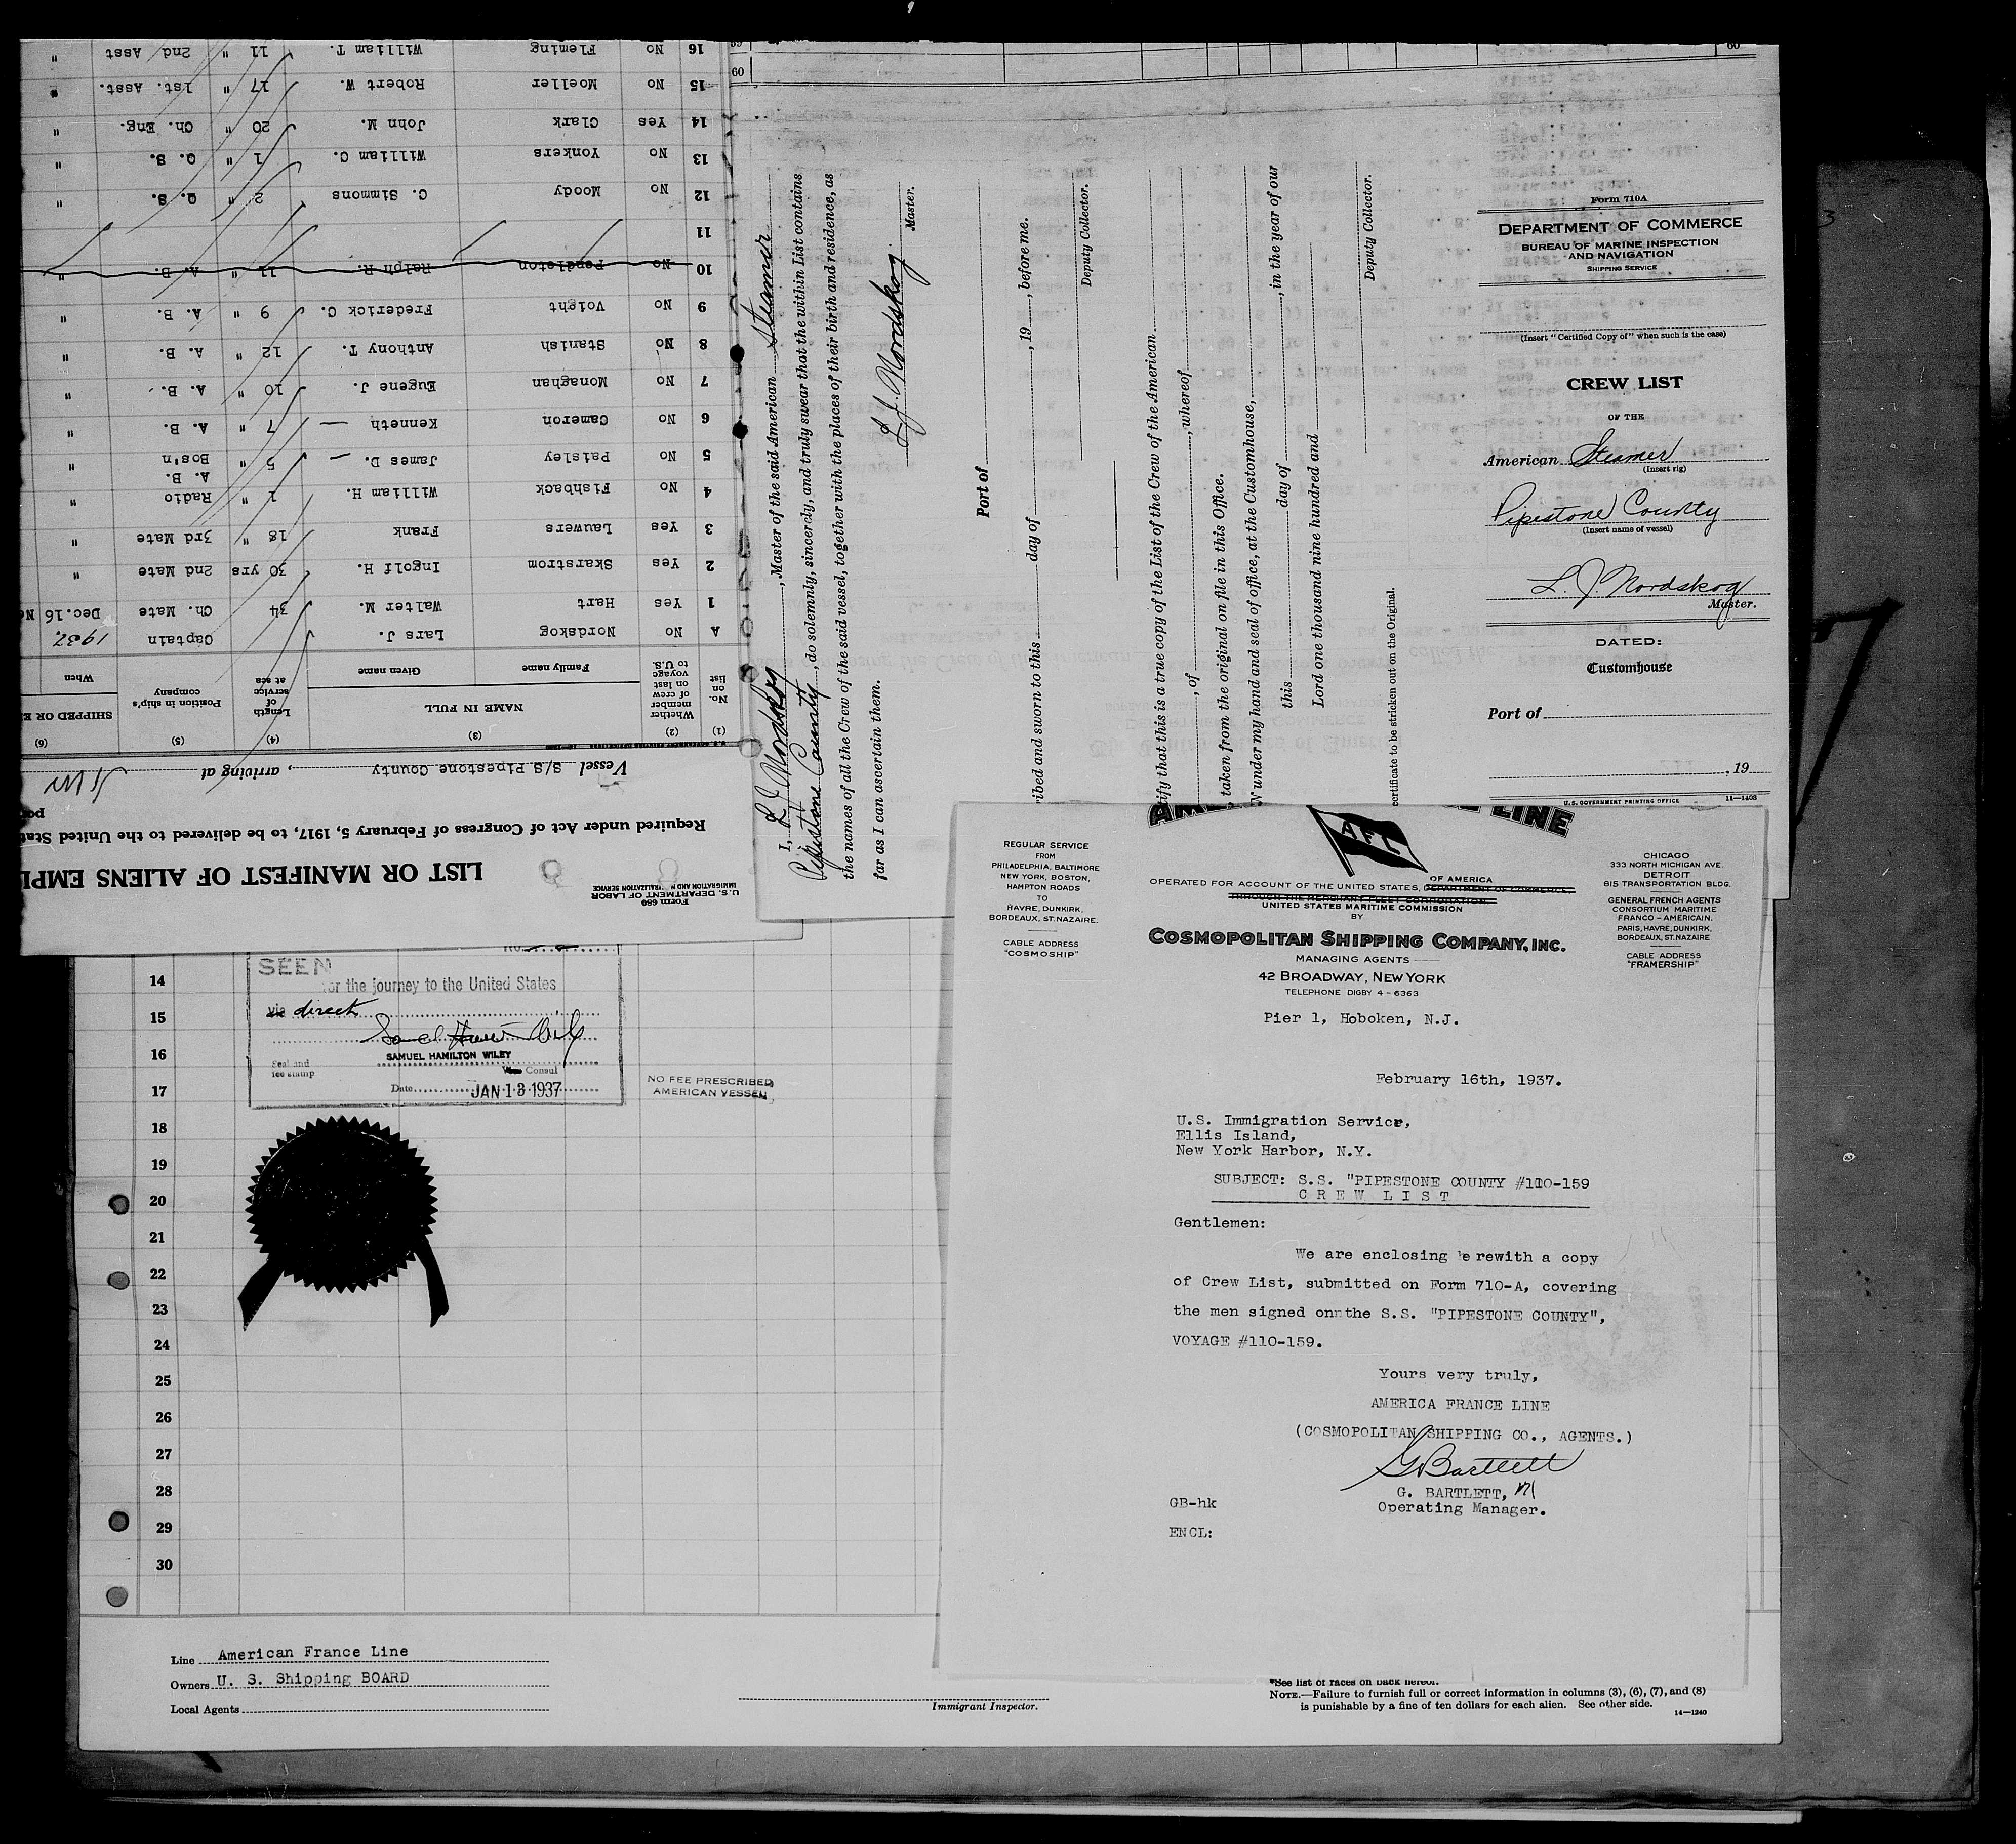 Form 680
U. S. DEPARTMENT OF LABOR
LIST OR MANIFEST OF ALIENS EMPL
Required under Act of Congress of February 5, 1917, to be delivered to the United Stat
Vessel S/S Pipestone County, arriving at
(1) (2) (3) (4) (5) (6)
No. on list
Whether member of crew on last voyage to U.S.
NAME IN FULL
Family name Given name
Length of service at sea
Position in ship's company
SHIPPED OR E
When
A No Nordskog Lars J. Captain 1937.
1 Yes Hart Walter M. 34 Ch. Mate Dec.16
2 Yes Skarstrom Ingolf H. 30 yrs 2nd Mate "
3 Yes Lauwers Frank 18 " 3rd Mate "
4 No Fishback William H. 1 " Radio "
5 No Paisley James D. 5 " A. B. Bos'n "
6 No Cameron Kenneth 7 " A. B. "
7 No Monaghan Eugene J. 10 " A. B. "
8 No Stanish Anthony T. 12 " A. B. "
9 No Voight Frederick C. 9 " A. B. "
10 No Pendleton Ralph R. 11 " A. B. "
11
12 No Moody C. Simmons 2 " O. S. "
13 No Yonkers William C. 1 " O. S. "
14 Yes Clark John M. 20 " Ch. Eng. "
15 No Moeller Robert W. 17 " 1st. Asst. "
16 No Fleming William T. 11 " 2nd Asst "
59
60
60
I, L J Nordskog, Master of the said American Steamer
Pipestone County, do solemnly, sincerely, and truly swear that the within List contains
the names of all the Crew of the said vessel, together with the places of their birth and residence, as
far as I can ascertain them.
L. J. Nordskog.
Master.
Port of
ribed and sworn to this day of , 19 , before me.
Deputy Collector.
tify that this is a true copy of the List of the Crew of the American
, of , whereof
taken from the original on file in this Office.
N under my hand and seal of office, at the Customhouse,
this day of , in the year of our
Lord one thousand nine hundred and
Deputy Collector.
certificate to be stricken out on the Original.
Form 710A
DEPARTMENT OF COMMERCE
BUREAU OF MARINE INSPECTION
AND NAVIGATION
SHIPPING SERVICE
(Insert "Certified Copy of" when such is the case)
CREW LIST
OF THE
American Steamer
(Insert rig)
Pipestone County
(Insert name of vessel)
L. J. Nordskog
Master.
DATED:
Customhouse
Port of
, 19
U. S. GOVERNMENT PRINTING OFFICE 11-1408
LINE
AFL
REGULAR SERVICE
FROM
PHILADELPHIA, BALTIMORE
NEW YORK, BOSTON,
HAMPTON ROADS
TO
HAVRE, DUNKIRK,
BORDEAUX, ST. NAZAIRE.
CABLE ADDRESS
"COSMOSHIP"
OPERATED FOR ACCOUNT OF THE UNITED STATES, DEPARTMENT OF COMMERCE,
OF AMERICA
THROUGH THE MERCHANT FLEET CORPORATION
UNITED STATES MARITIME COMMISSION
BY
COSMOPOLITAN SHIPPING COMPANY, INC.
MANAGING AGENTS
42 BROADWAY, NEW YORK
TELEPHONE DIGBY 4-6363
CHICAGO
333 NORTH MICHIGAN AVE.
DETROIT
815 TRANSPORTATION BLDG.
GENERAL FRENCH AGENTS
CONSORTIUM MARITIME
FRANCO-AMERICAIN.
PARIS, HAVRE, DUNKIRK,
BORDEAUX, ST. NAZAIRE
CABLE ADDRESS
"FRAMERSHIP"
Pier 1, Hoboken, N.J.
February 16th, 1937.
U.S. Immigration Service,
Ellis Island,
New York Harbor, N.Y.
SUBJECT: S.S. "PIPESTONE COUNTY #110-159
C R E W L I S T
Gentlemen:
We are enclosing herewith a copy
of Crew List, submitted on Form 710-A, covering
the men signed on the S.S. "PIPESTONE COUNTY",
VOYAGE #110-159.
Yours very truly,
AMERICA FRANCE LINE
(COSMOPOLITAN SHIPPING CO., AGENTS.)
G Bartlett
G. BARTLETT,
Operating Manager.
GB-hk
ENCL:
SEEN
for the journey to the United States
via direct
SAMUEL HAMILTON WILEY
Vice Consul
Seal and
fee stamp
Date JAN 13 1937
NO FEE PRESCRIBED
AMERICAN VESSEL
14
15
16
17
18
19
20
21
22
23
24
25
26
27
28
29
30
Line American France Line
Owners U. S. Shipping BOARD
Local Agents
Immigrant Inspector.
*See list of races on back hereof.
NOTE.—Failure to furnish full or correct information in columns (3), (6), (7), and (8)
is punishable by a fine of ten dollars for each alien. See other side.
14-1240